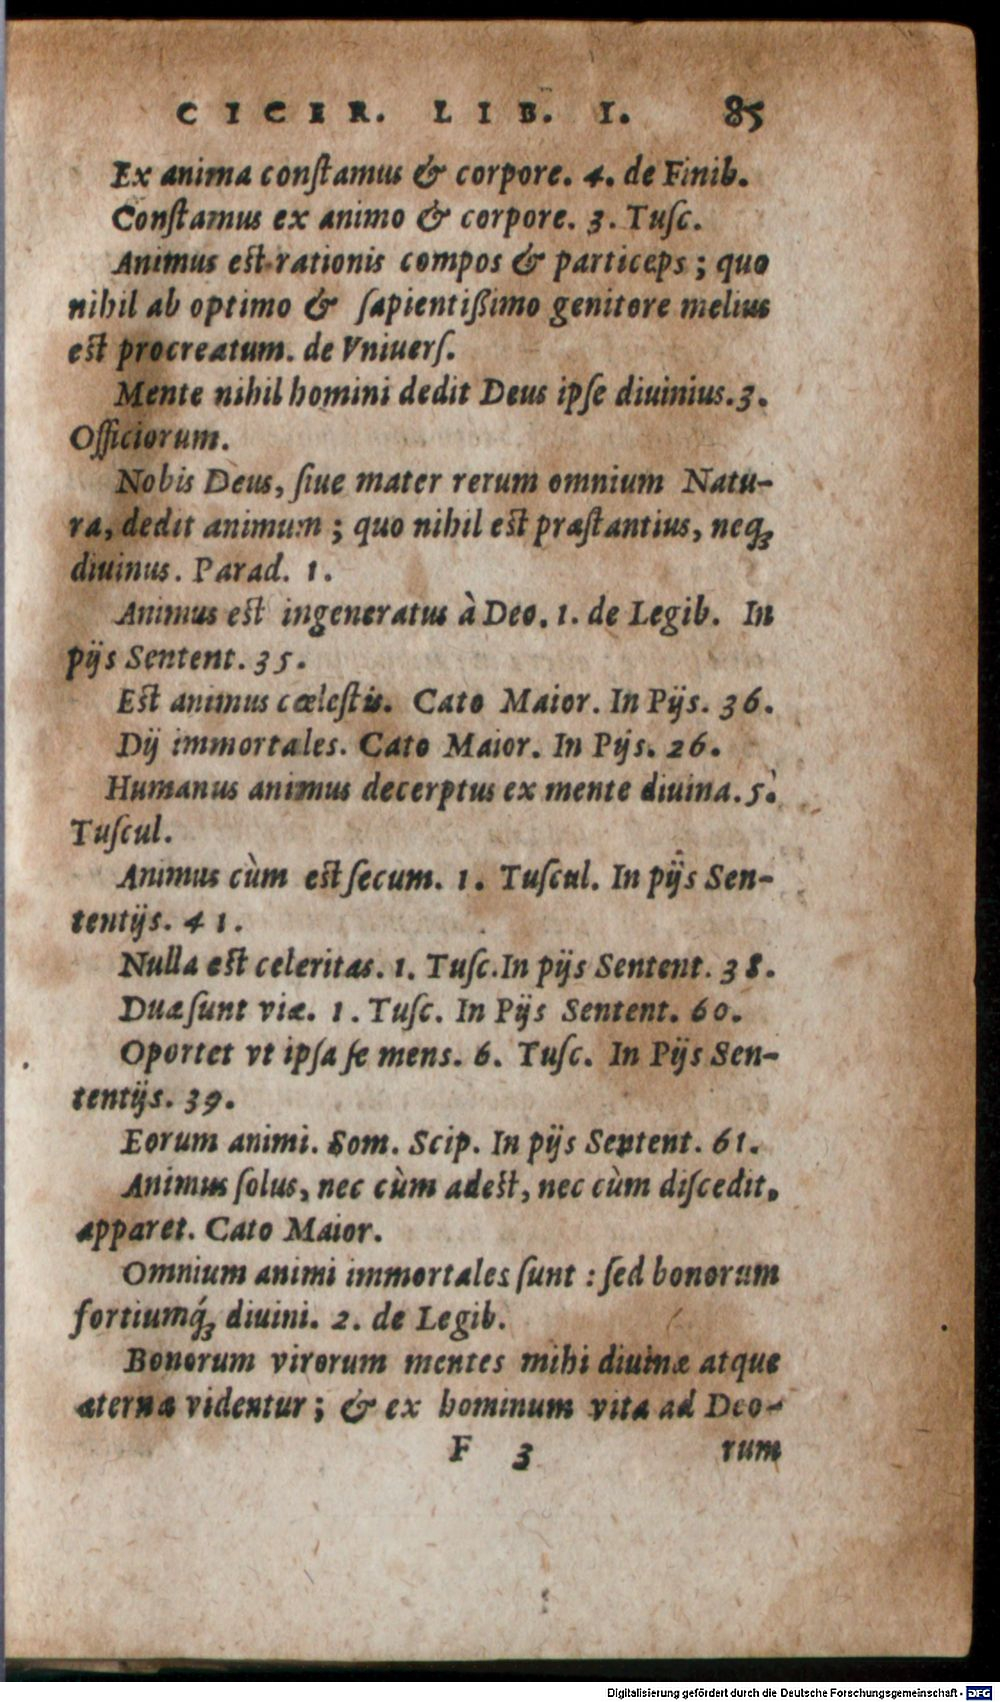 CICER. LIB. I. 85
Ex anima conſtamus & corpore. 4. de Finib.
Conſtamus ex animo & corpore. 3. Tuſc.
Animus est rationis compos & particeps ; quo
nihil ab optimo & ſapientißimo genitore melius
est procreatum. de Vniuerſ.
Mente nihil homini dedit Deus ipſe diuinius. 3.
Officiorum.
Nobis Deus, ſiue mater rerum omnium Natu-
ra, dedit animum ; quo nihil est præſtantius, neq;
diuinus. Parad. 1.
Animus est ingeneratus à Deo. 1. de Legib. In
pijs Sentent. 35.
Est animus cœleſtis. Cato Maior. In Pijs. 36.
Dij immortales. Cato Maior. In Pijs. 26.
Humanus animus decerptus ex mente diuina. 5.
Tuſcul.
Animus cùm est ſecum. 1. Tuſcul. In pijs Sen-
tentijs. 41.
Nulla est celeritas. 1. Tuſc. In pijs Sentent. 38.
Duæ ſunt viæ. 1. Tuſc. In Pijs Sentent. 60.
Oportet vt ipſa ſe mens. 6. Tuſc. In Pijs Sen-
tentijs. 39.
Eorum animi. Som. Scip. In pijs Sentent. 61.
Animus ſolus, nec cùm adest, nec cùm diſcedit,
apparet. Cato Maior.
Omnium animi immortales ſunt : ſed bonorum
fortiumq́; diuini. 2. de Legib.
Bonorum virorum mentes mihi diuinæ atque
æternæ videntur ; & ex hominum vita ad Deo-
F 3 rum
Digitalisierung gefördert durch die Deutsche Forschungsgemeinschaft - DFG